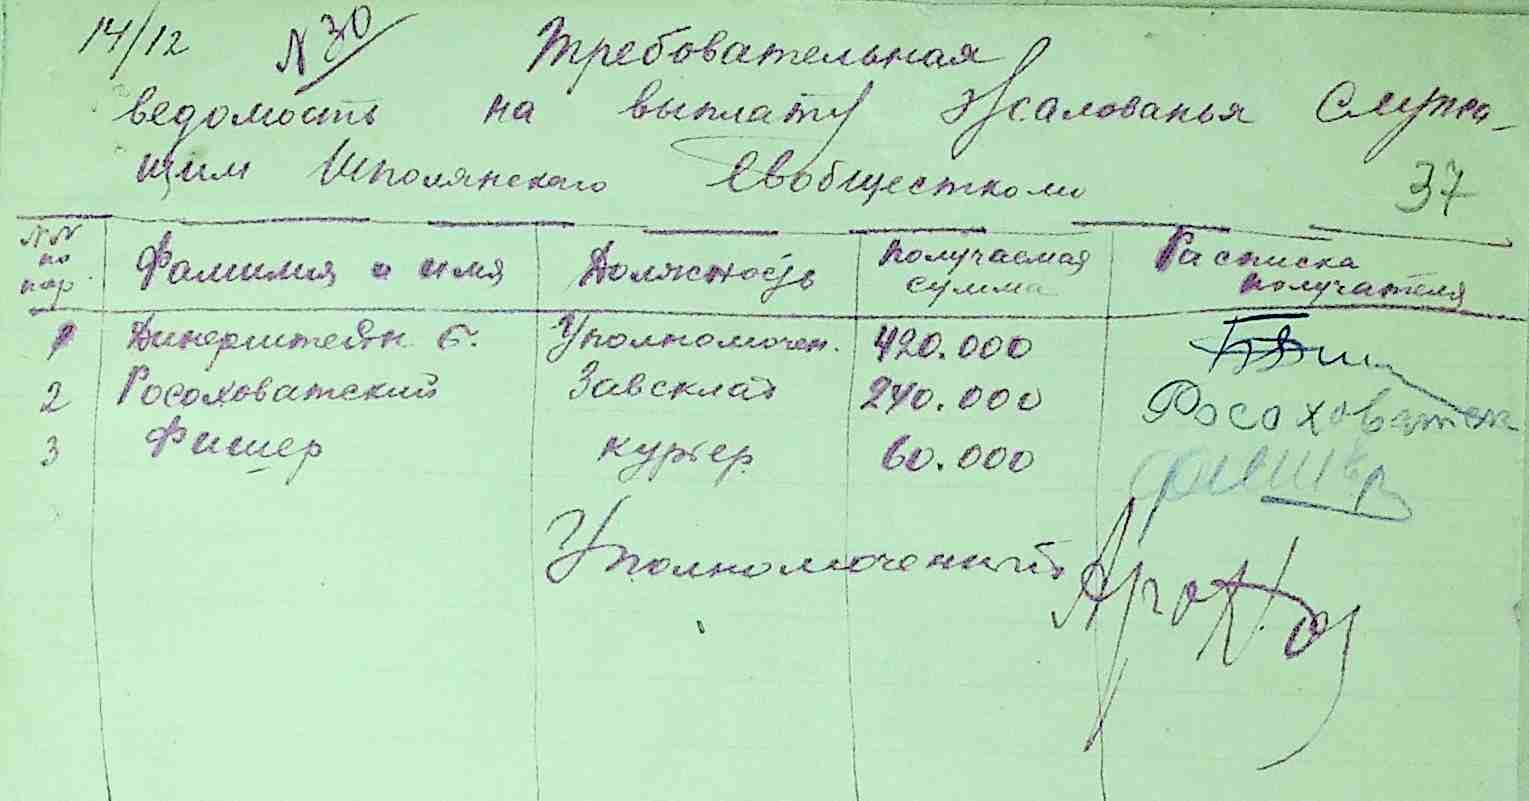 14/12 N 30 Требовательная
ведомость на выплату Жалованья Служа-
щим Шполянского Евобщесткома
37
NN по пор. Фамилия и имя Должность Получаемая сумма Расписка получателя
1 Динерштейн Б. Уполномочен. 420.000
2 Росоховатский Завсклад 240.000 Росоховатск
3 Фишер курьер 60.000 Фишер
Уполномоченный